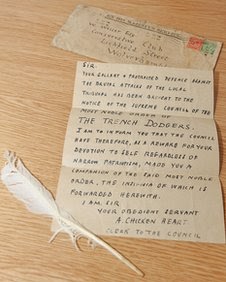 W. Weller Esq
Conservative Club
Lichfield Street
Wolverhampton
SIR.
YOUR GALLANT & PROLONGED DEFENCE AGAINST
THE BRUTAL ATTACKS OF THE LOCAL
TRIBUNAL HAS BEEN BROUGHT TO THE
NOTICE OF THE SUPREME COUNCIL OF THE
MOST NOBLE ORDER OF
THE TRENCH DODGERS.
I AM TO INFORM YOU THAT THE COUNCIL
HAVE THEREFORE, AS A REWARD FOR YOUR
DEVOTION TO SELF REGARDLESS OF
NARROW PATRIOTISM, MADE YOU A
COMPANION OF THE SAID MOST NOBLE
ORDER, THE INSIGNIA OF WHICH IS
FORWARDED HEREWITH.
I AM SIR
YOUR OBEDIENT SERVANT
A. CHICKEN HEART.
CLERK TO THE COUNCIL